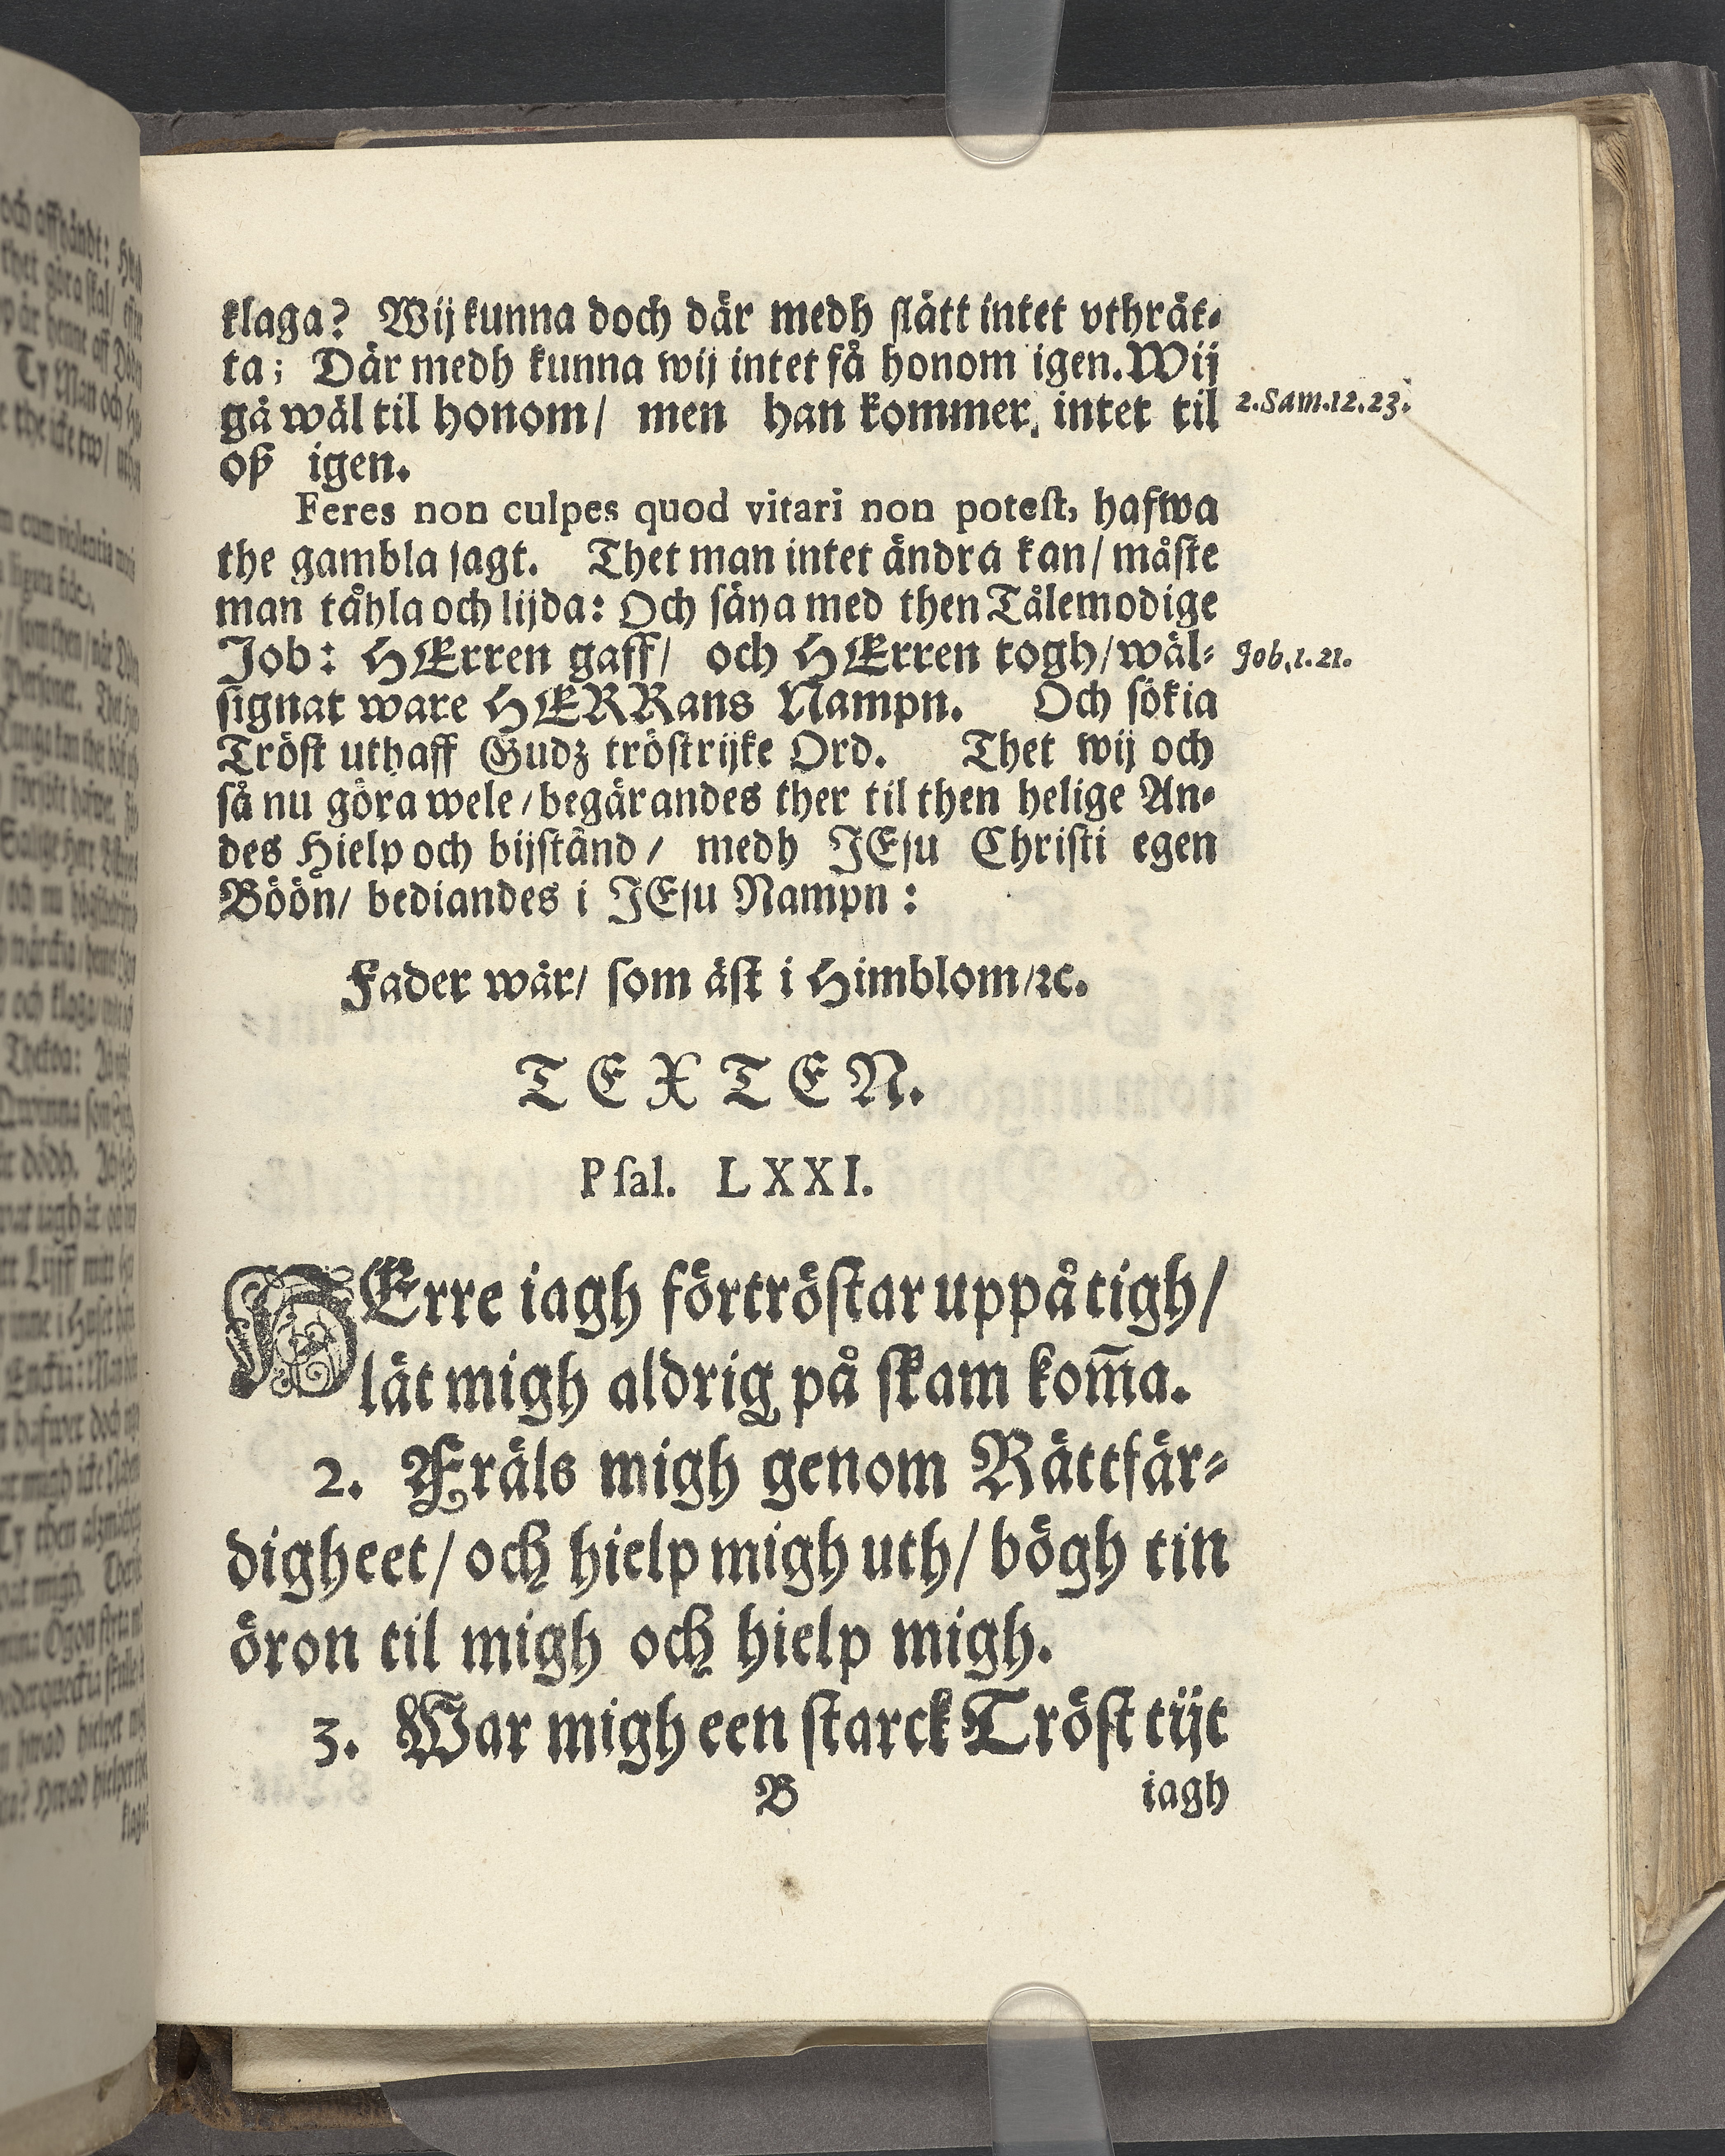 klaga? Wij kunna doch där medh slätt intet vthrät-
ta; Där medh kunna wij intet få honom igen. Wij
gå wäl til honom/ men han kommer intet til
2. Sam. 12. 23.
oß igen.
Feres non culpes quod vitari non potest, hafwa
the gambla sagt. Thet man intet ändra kan/ måste
man tåhla och lijda: Och säya med then Tålemodige
Job: HErren gaff/ och HErren togh/ wäl-
Job. 1. 21.
signat ware HERRans Nampn. Och sökia
Tröst uthaff Gudz tröstrijke Ord. Thet wij och
så nu göra wele/ begärandes ther til then helige An-
des Hielp och bijstånd/ medh JEsu Christi egen
Böön/ bediandes i JEsu Nampn:
Fader wår/ som äst i Himblom/ ꝛc.
TEXTEN.
Psal. LXXI.
HErre iagh förtröstar uppå tigh/
låt migh aldrig på skam kom̅a.
2. Fräls migh genom Rättfär-
digheet/ och hielp migh uth/ bögh tin
öron til migh och hielp migh.
3. War migh een starck Tröst tijt
B iagh